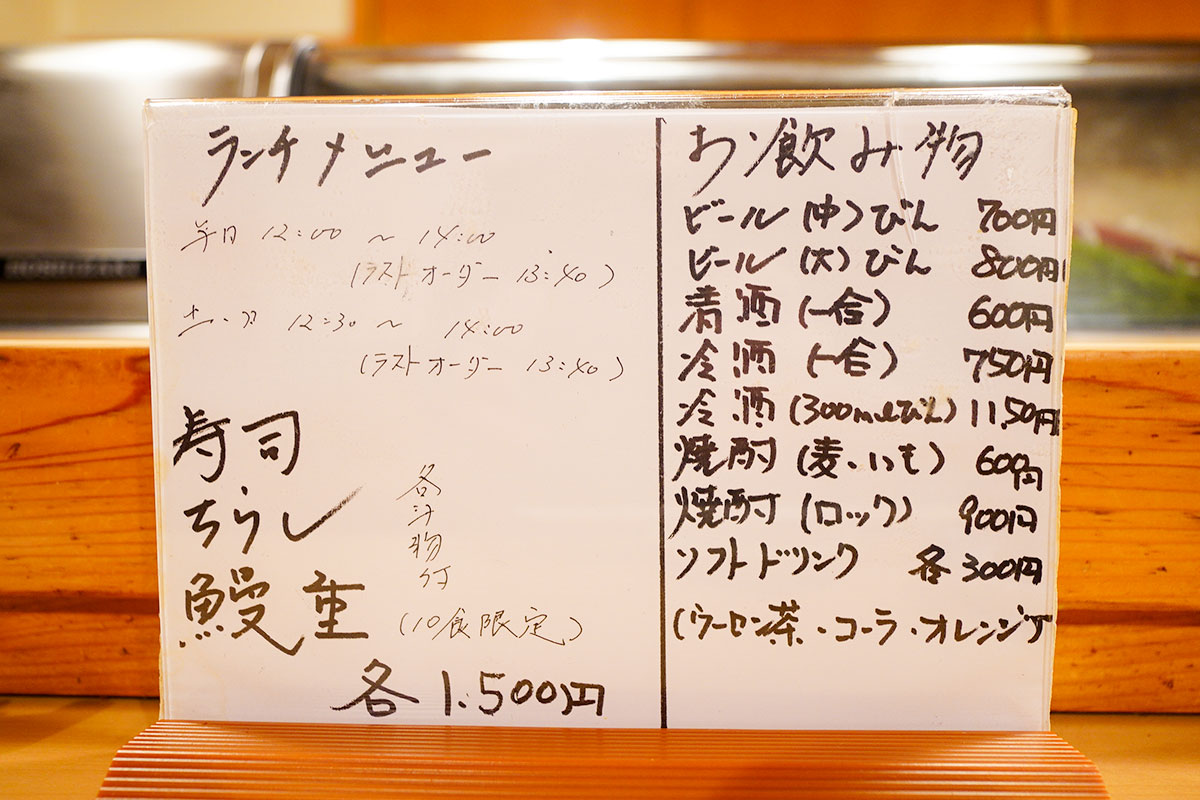 ランチメニュー
平日 12:00 ~ 14:00
(ラストオーダー 13:40)
土・日 12:30 ~ 14:00
(ラストオーダー 13:40)
寿司
ちらし
鰻重
各
汁
物
付
(10食限定)
各 1.500円
お飲み物
ビール(中)びん 700円
ビール(大)びん 800円
清酒(一合) 600円
冷酒(一合) 750円
冷酒(300mlびん) 1150円
焼酎(麦、いも) 600円
焼酎(ロック) 900円
ソフトドリンク 各300円
(ウーロン茶・コーラ・オレンジ